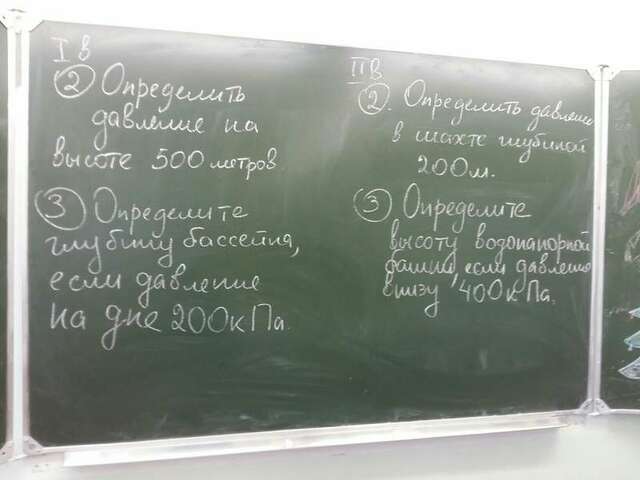 I в
2 Определить
давление на
высоте 500 метров
3 Определите
глубину бассейна,
если давление
на дне 200кПа.
II В
2. Определить давление
в шахте глубиной
200м.
3 Определите
высоту водонапорной
башни, если давление
внизу 400кПа.